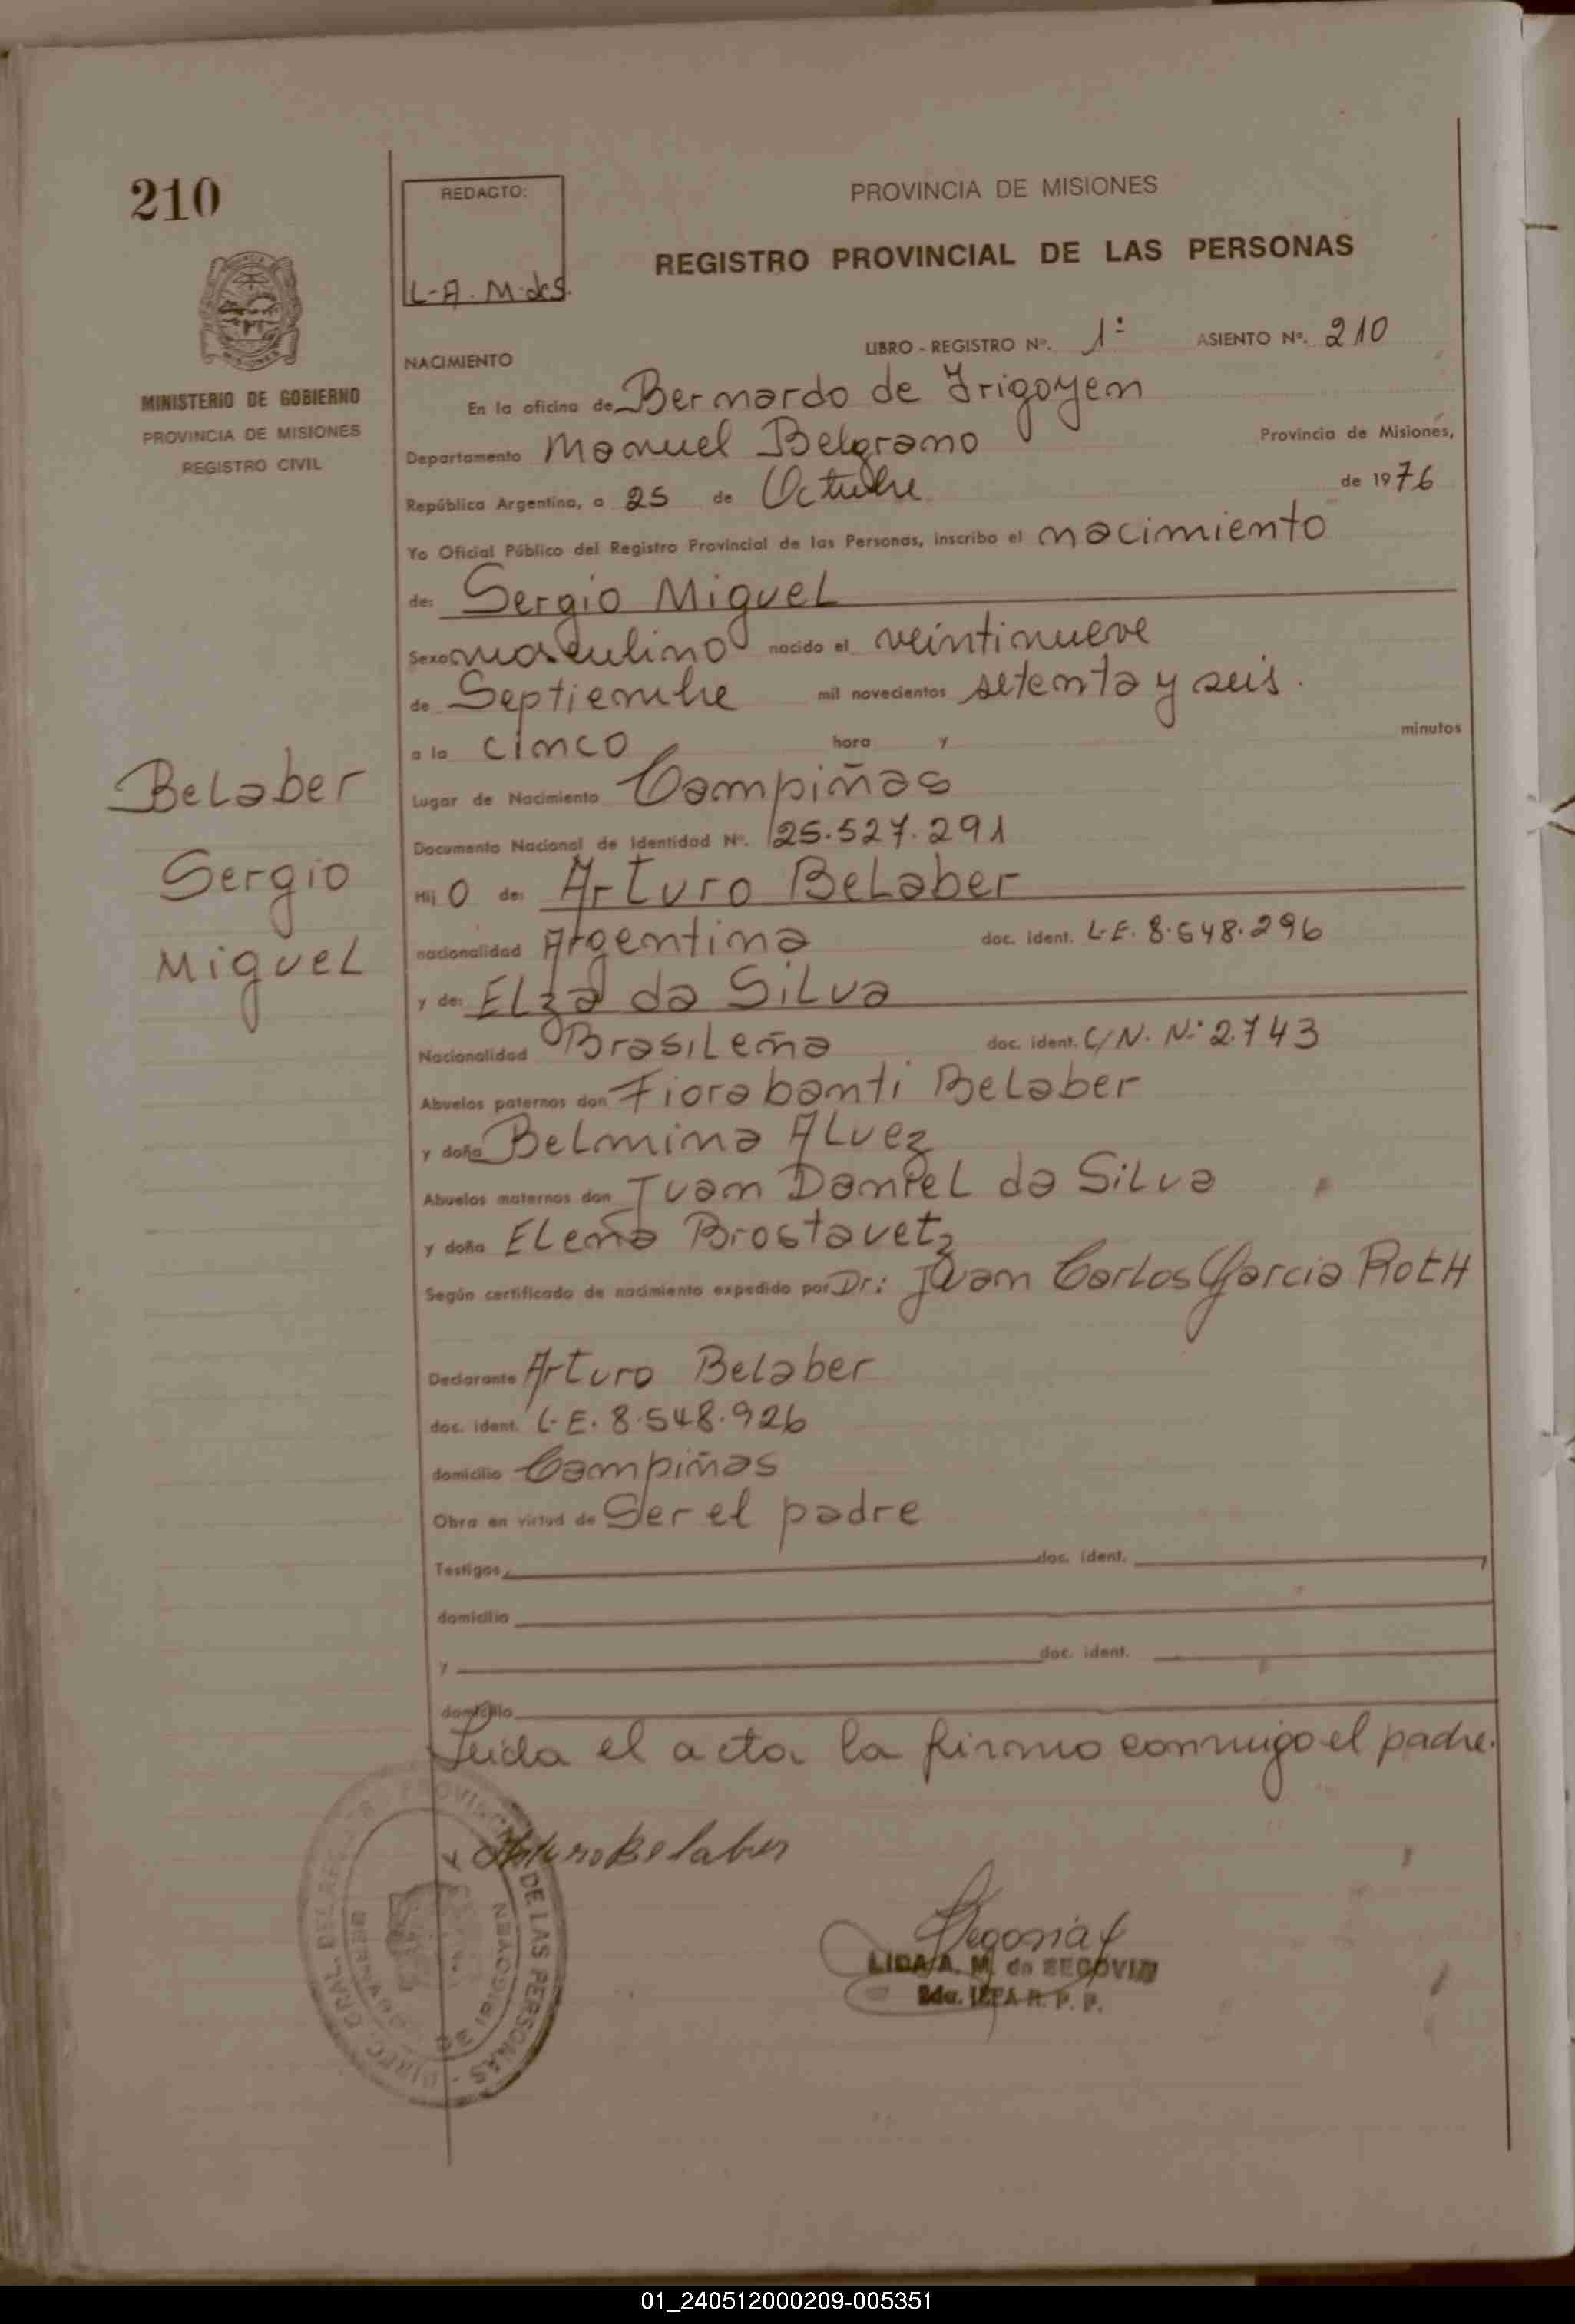 210
REDACTO:
L-A. M. de S.
PROVINCIA DE MISIONES
REGISTRO PROVINCIAL DE LAS PERSONAS
MINISTERIO DE GOBIERNO
PROVINCIA DE MISIONES
REGISTRO CIVIL
LIBRO - REGISTRO Nº. 1º ASIENTO Nº. 210
NACIMIENTO
En la oficina de Bernardo de Irigoyen
Departamento Manuel Belgrano Provincia de Misiones,
República Argentina, a 25 de Octubre de 1976
Yo Oficial Público del Registro Provincial de las Personas, inscribo el nacimiento
de: Sergio Miguel
Sexo masculino nacido el veintinueve
de Septiembre mil novecientos setenta y seis.
a la cinco hora y minutos
Belaber
Sergio
Miguel
Lugar de Nacimiento Campiñas
Documento Nacional de Identidad Nº. 25.527.291
Hij o de: Arturo Belaber
nacionalidad Argentina doc. ident. L.E. 8.548.296
y de: Elza da Silva
Nacionalidad Brasileña doc. ident. C/N. Nº 2.743
Abuelos paternos don Fiorabanti Belaber
y doña Belmina Alvez
Abuelos maternos don Juan Daniel da Silva
y doña Elena Brostavetz
Según certificado de nacimiento expedido por Dr: Juan Carlos Garcia Roth
Declarante Arturo Belaber
doc. ident. L.E. 8.548.926
domicilio Campiñas
Obra en virtud de Ser el padre
Testigos doc. ident.
domicilio
y doc. ident.
domicilio
Leida el acta la firmo conmigo el padre.
x Arturo Belaber
Segovia
LIDA A. M. de SEGOVIA
2da. JEFA R. P. P.
DIREC. GRAL. DEL REGISTRO PROVINCIAL DE LAS PERSONAS
BERNARDO DE IRIGOYEN
01_240512000209-005351